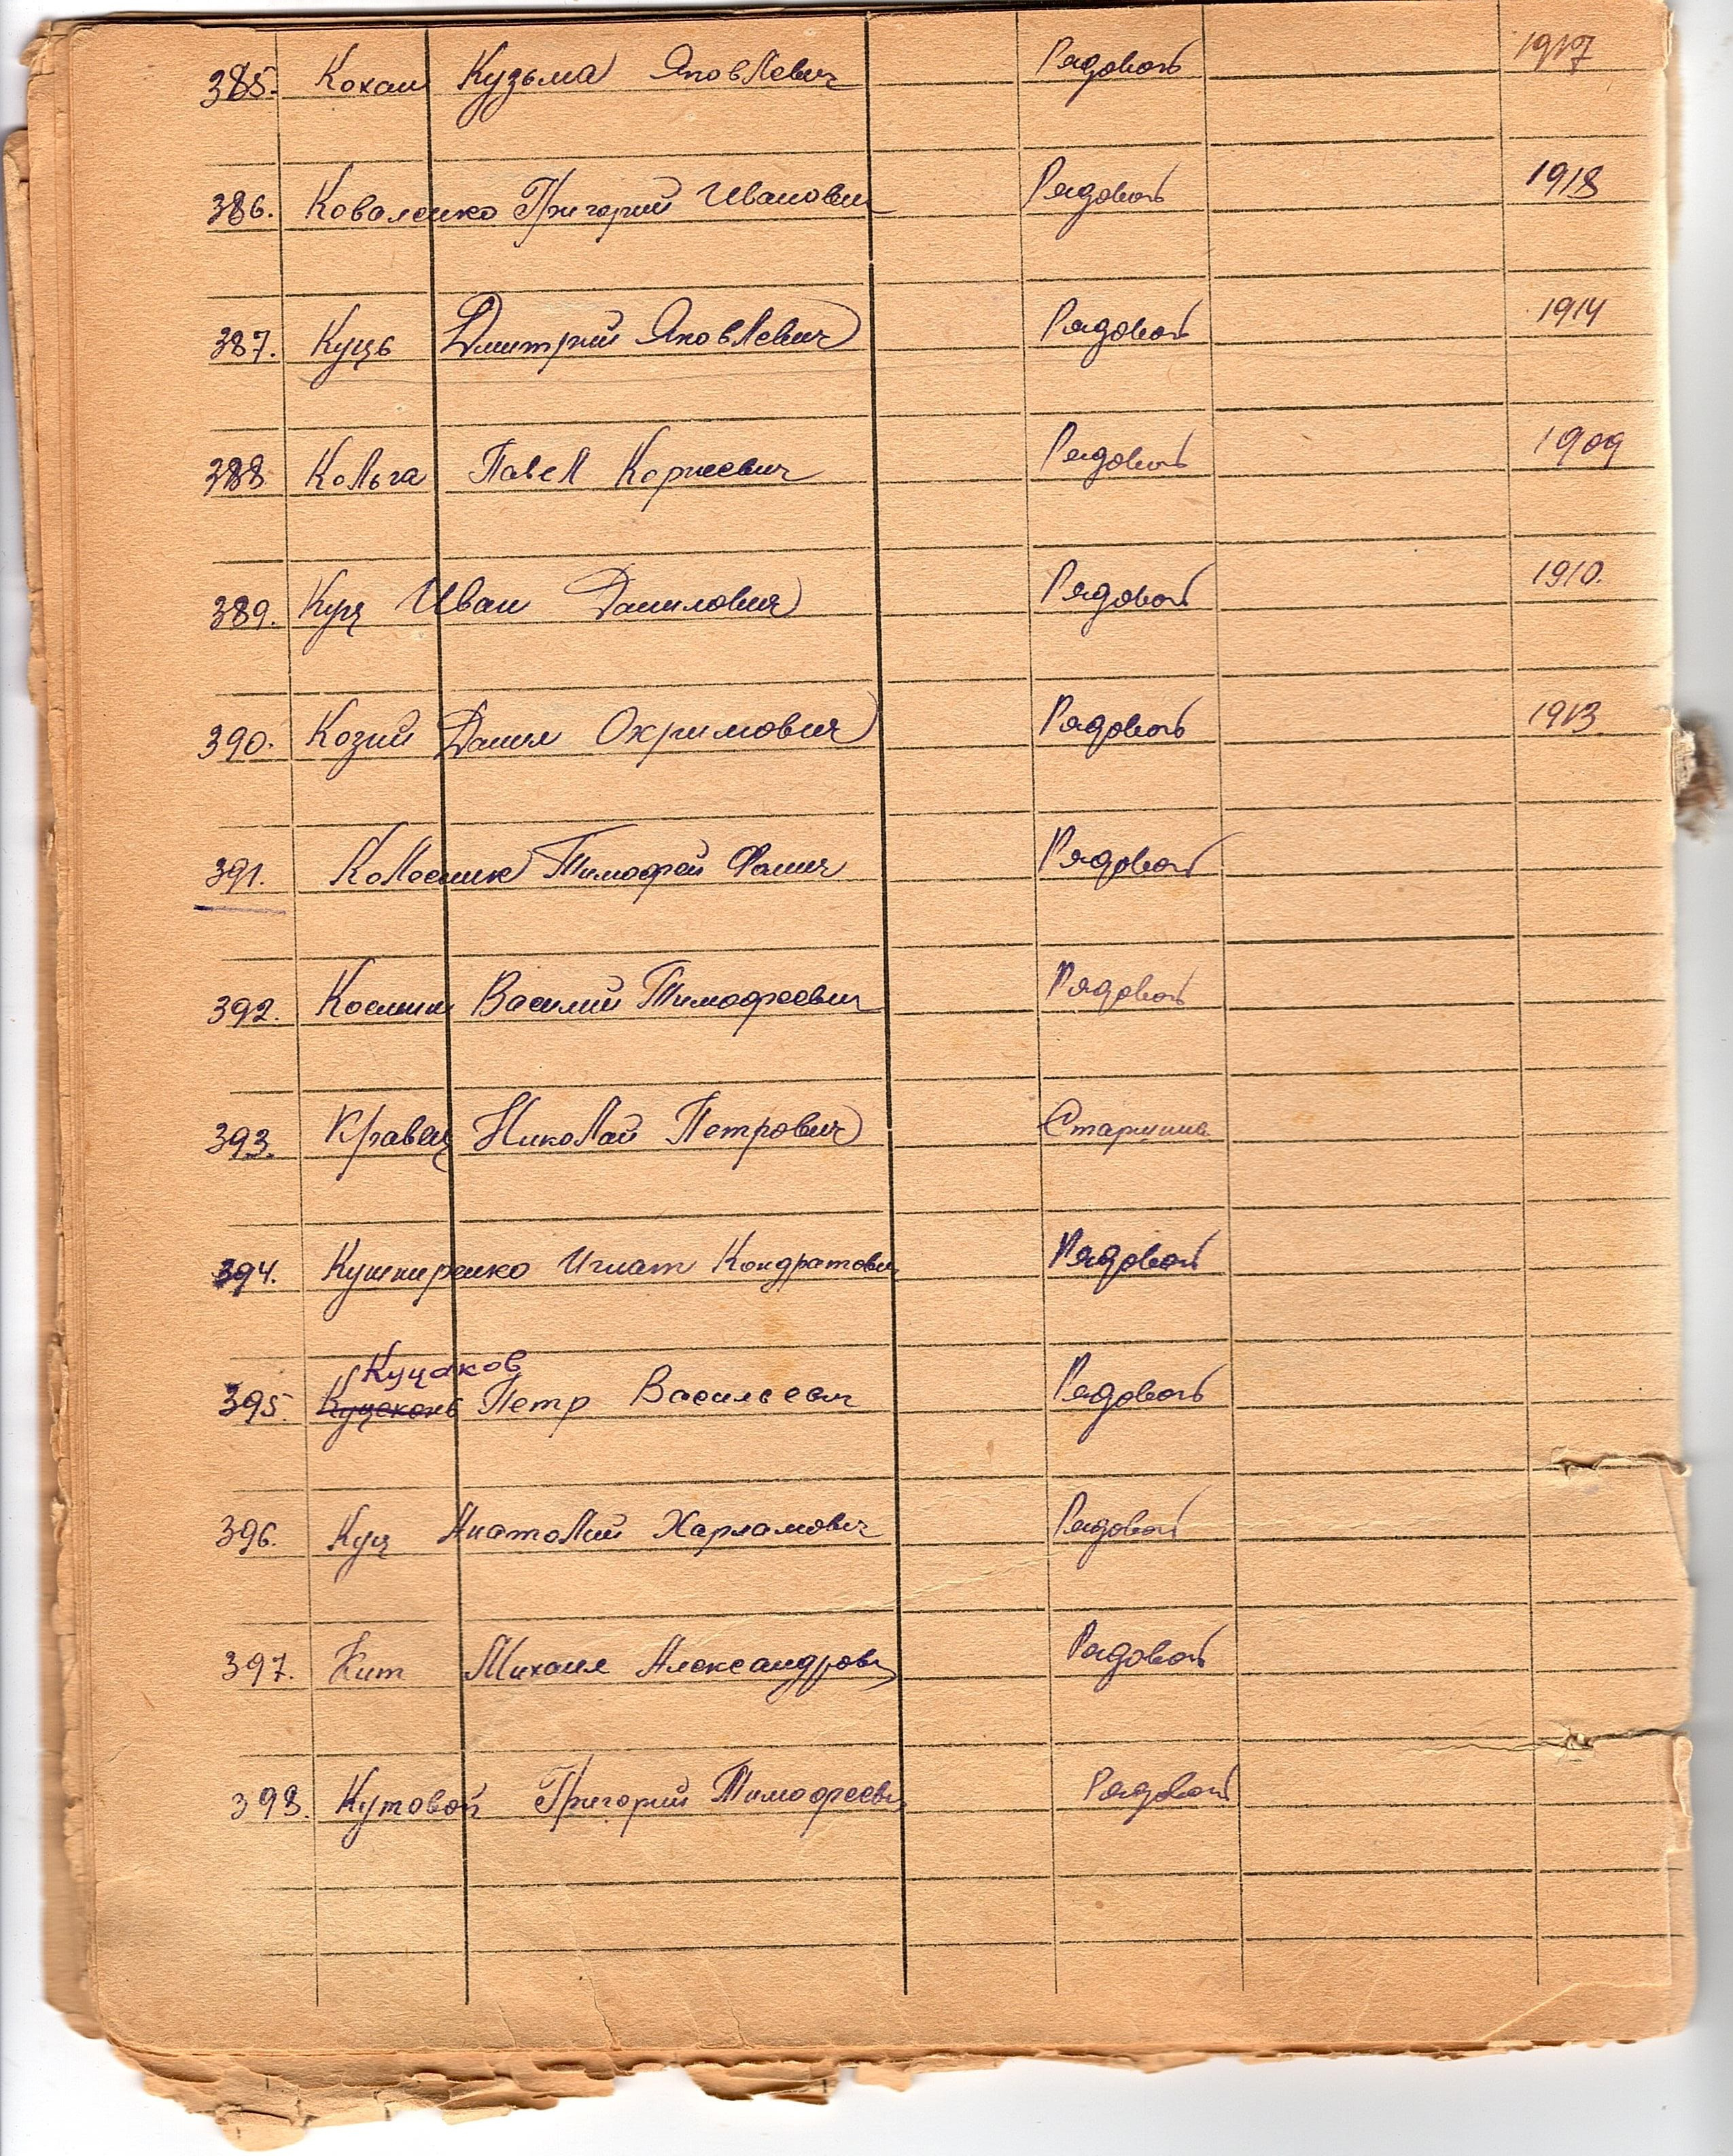 385. Кохан Кузьма Яковлевич Рядовой 1917
386. Коваленко Григорий Иванович Рядовой 1918
387. Куць Дмитрий Яковлевич Рядовой 1914
388 Кольга Павел Корнеевич Рядовой 1909
389. Куц Иван Данилович Рядовой 1910.
390. Козий Данил Охримович Рядовой 1913
391. Колесник Тимофей Фомич Рядовой
392. Василий Тимофеевич Рядовой
393. Кравец Николай Петрович Старшина
394. Кушниренко Игнат Кондратович Рядовой
Куцаков
395. Петр Васильевич Рядовой
396. Куц Анатолий Харламович Рядовой
397. Кит Михаил Александрович Рядовой
398. Кутовой Григорий Тимофеевич Рядовой